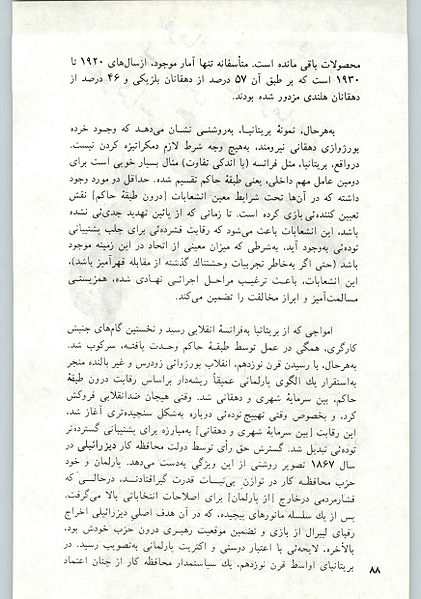 محصولات باقی مانده است. متأسفانه تنها آمار موجود، ازسال‌های ۱۹۲۰ تا
۱۹۳۰ است که بر طبق آن ۵۷ درصد از دهقانان بلژیکی و ۴۶ درصد از
دهقانان هلندی مزدور شده بودند.
به‌هرحال، نمونهٔ بریتانیا، به‌روشنی نشان می‌دهد که وجود خرده
بورژوازی دهقانی نیرومند، به‌هیچ وجه شرط لازم دمکراتیزه کردن نیست.
درواقع، بریتانیا، مثل فرانسه (با اندکی تفاوت) مثال بسیار خوبی است برای
دومین عامل مهم داخلی، یعنی طبقهٔ حاکم تقسیم شده. حداقل دو مورد وجود
داشته که در آن‌ها تحت شرایط معین انشعابات [درون طبقهٔ حاکم] نقش
تعیین کننده‌ئی بازی کرده است. تا زمانی که از پائین تهدید جدی‌ئی نشده
باشد، این انشعابات باعث می‌شود که رقابت فشرده‌ئی برای جلب پشتیبانی
توده‌ئی به‌وجود آید. به‌شرطی که میزان معینی از اتحاد در این زمینه موجود
باشد (حتی اگر به‌خاطر تجربیات وحشتناك گذشته از مقابله قهرآمیز باشد)،
این انشعابات، باعث ترغیب مراحل اجرائی نهادی شده، همزیستی
مسالمت‌آمیز و ابراز مخالفت را تضمین می‌کند.
امواجی که از بریتانیا به‌فرانسهٔ انقلابی رسید و نخستین گام‌های جنبش
کارگری، همگی در عمل توسط طبقهٔ حاکم وحدت یافته، سرکوب شد.
به‌هرحال، با رسیدن قرن نوزدهم، انقلاب بورژوائی زودرس و غیر بالنده منجر
به‌استقرار یك الگوی پارلمانی عمیقاً ریشه‌دار براساس رقابت درون طبقهٔ
حاکم، بین سرمایهٔ شهری و دهقانی شد. وقتی هیجان ضدانقلابی فروکش
کرد، و بخصوص وقتی تهییج توده‌ئی دوباره به‌شکل سنجیده‌تری آغاز شد،
این رقابت [بین سرمایهٔ شهری و دهقانی] به‌مبارزه برای پشتیبانی گسترده‌تر
توده‌ئی تبدیل شد. گسترش حق رأی توسط دولت محافظه کار دیزرائیلی در
سال ۱۸۶۷ تصویر روشنی از این ویژگی به‌دست می‌دهد. پارلمان و خود
حزب محافظه کار در توازن بی‌ثبات قدرت گیرافتادند، درحالی که
فشارمردمی درخارج [از پارلمان] برای اصلاحات انتخاباتی بالا می‌گرفت.
پس از یك سلسله مانورهای پیچیده، که در آن هدف اصلی دیزرائیلی اخراج
رقبای لیبرال از بازی و تضمین موقعیت رهبری درون حزب خودش بود،
بالأخره، لایحه‌ئی با اعتبار دوستی و اکثریت پارلمانی به‌تصویب رسید. در
بریتانیای اواسط قرن نوزدهم، یك سیاستمدار محافظه کار از چنان اعتماد
۸۸